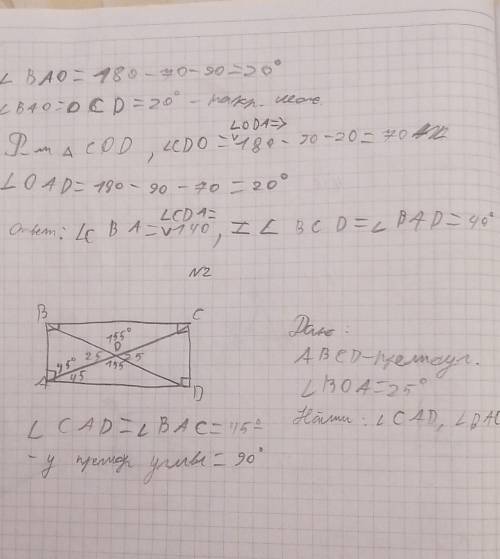 ∠ BAO = 180 - 70 - 90 = 20°
∠ BAO = OCD = 20° -
∠ODA =>
△ COD, ∠CDO = 180 - 20 = 70
∠ OAD = 180 - 90 - 70 = 20°
∠CDA =
Ответ: ∠C B A = 140, ∠ B C D = ∠ BAD = 40°
N2
B
C
155°
O
25
25
155
45°
45
A
D
Дано:
ABCD - прямоуг.
∠BOA = 25°
Найти: ∠CAD, ∠BAC
∠ CAD = ∠ BAC = 45°
- у прямоу углы = 90°